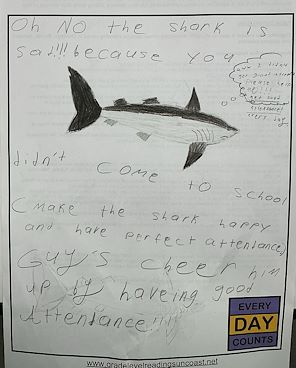 Oh NO the shark is
sad!!! because you
I didn't
get good
every day
didn't
come to school
(make the shark happy
and have perfect attentance)
Guy's cheer him
up by haveing good
Attentance!!!
EVERY
DAY
COUNTS
www.gradelevelreadingsuncoast.net